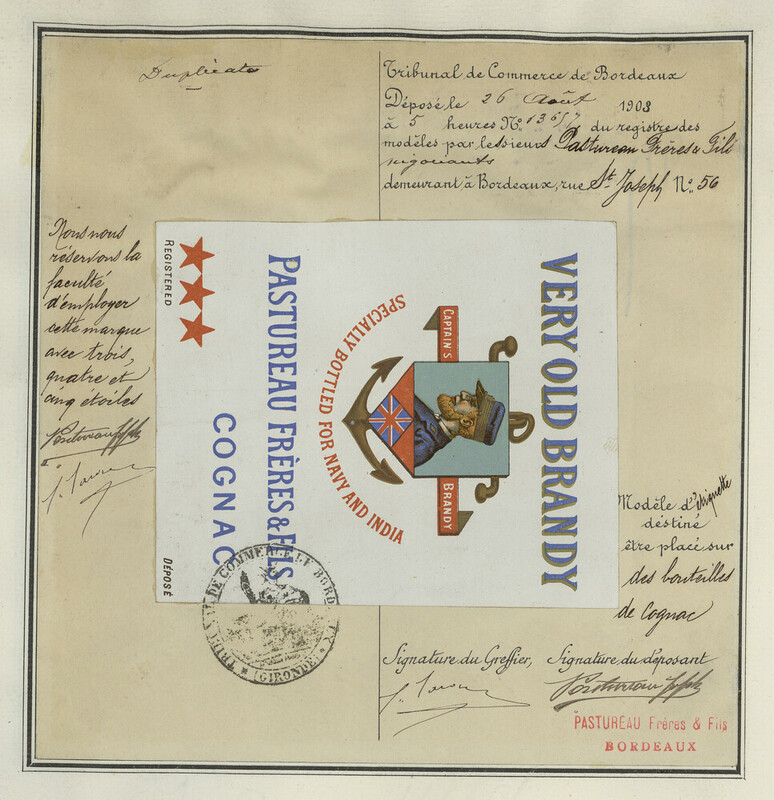 Duplicata
Tribunal de Commerce de Bordeaux
Déposé le 26 Août 1903
à 5 heures No. 13657 du registre des
modèles par les sieurs Pastureau Frères & Fils
négociants
demeurant à Bordeaux, rue St. Joseph No. 56
Nous nous
réservons la
faculté
d'employer
cette marque
avec trois,
quatre et
cinq étoiles
VERY OLD BRANDY
CAPTAIN'S
BRANDY
SPECIALLY BOTTLED FOR NAVY AND INDIA
PASTUREAU FRÈRES & FILS
COGNAC
REGISTERED
DÉPOSÉ
TRIBUNAL DE COMMERCE DE BORDEAUX
(GIRONDE)
Modèle d'étiquette
destiné
être placé sur
des bouteilles
de Cognac
Signature du Greffier, Signature du déposant
PASTUREAU Frères & Fils
BORDEAUX